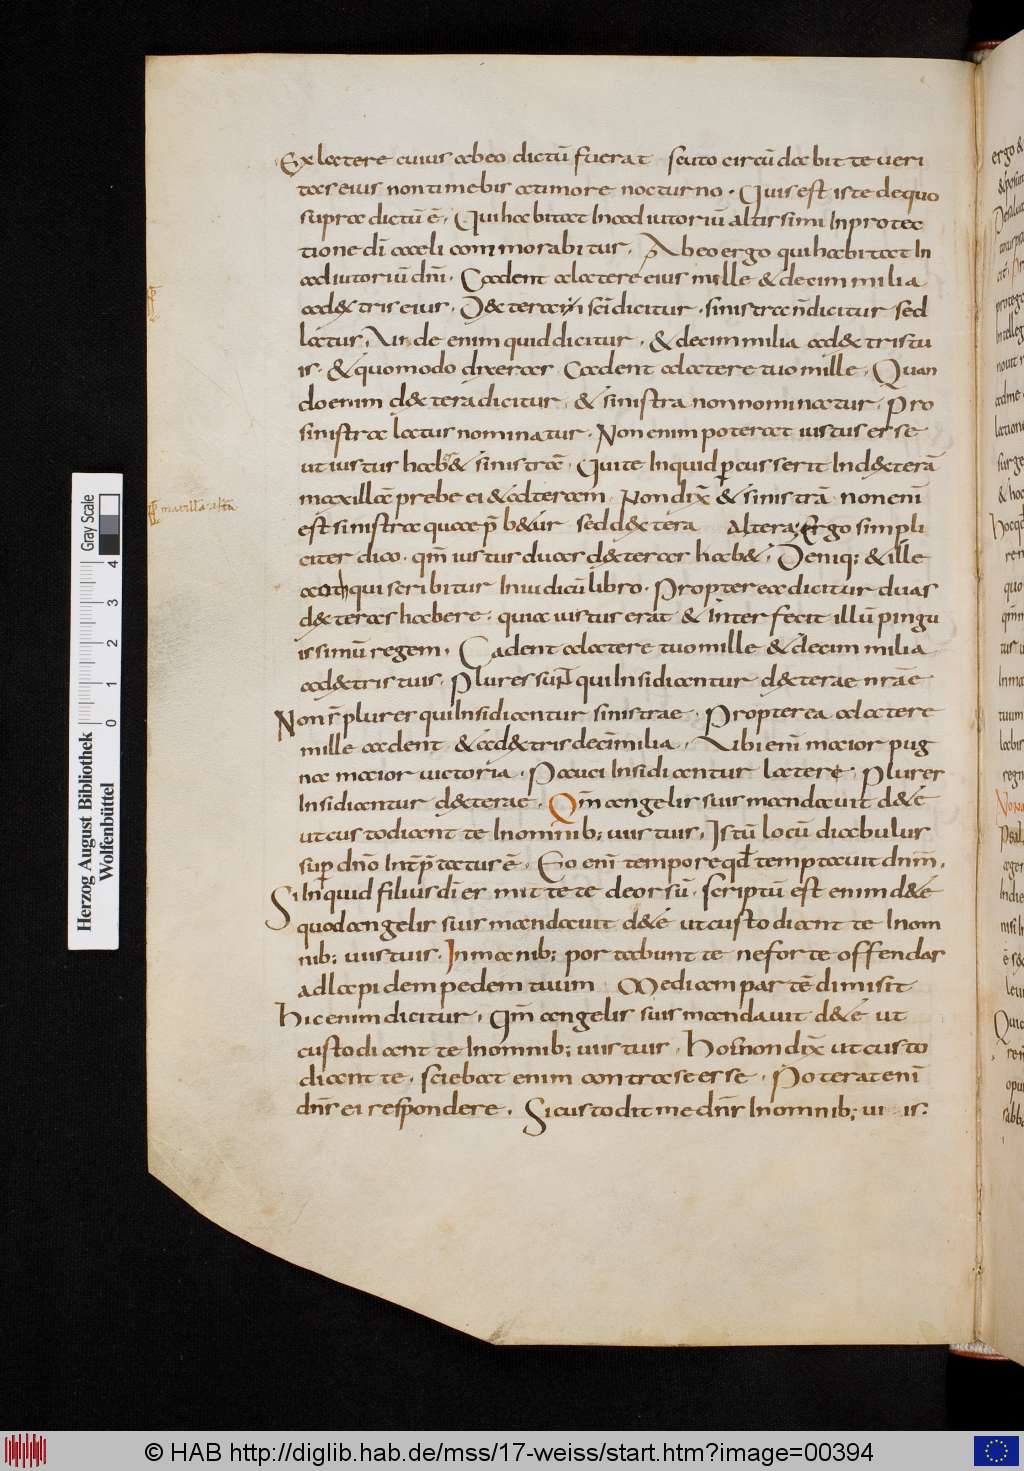 Ex latere cuius abeo dictū fuerat scuto circū dabit te veri
tas eius non timebis a timore nocturno. Quis est iste de quo
supra dictū ē. Qui habitat in adiutoriū altissimi in protec
tione dī caeli commorabitur. Ab eo ergo qui habitat in
adiutoriū dnī. Cadent a latere eius mille & decim milia
a d&tris eius. D&tera in dicitur. sinistra n dicitur sed
latus. Unde enim quid dicitur. & decim milia a d&tris tu
is. & quomodo dixeras. Cadent a latere tuo mille. Quan
do enim d&tera dicitur & sinistra non nominatur. Pro
sinistra latus nominatur. Non enim poterat iustus esse
ut iustus hab& sinistrā. Qui te inquid pcusserit in d&terā
maxillā prebe ei & alteram. Non dix̄ & sinistrā non enī
est sinistra qua p̄b&ur sed d&tera altera. Ergo simpli
citer dico. qm̄ iustus duas d&teras hab&. Deniq; & ille
aoth qui scribitur in iudicū libro. Propterea dicitur duas
d&teras habere. quia iustus erat & interfecit illū pingu
issimū regem. Cadent a latere tuo mille & decim milia
a d&tris tuis. Plures sunt qui insidiantur d&terae nrāe
Non s̄ plures qui insidiantur sinistrae. Propterea a latere
mille cadent & a d&tris decīmilia. Ubi enī maior pug
na maior uictoria. Pauci insidiantur latere. Plures
insidiantur d&terae. Qm̄ angelis suis mandauit d& ē
ut custodiant te in omnib; uiis tuis. Istū locū diabulus
sup dnō intp̄tatus ē. Eo enī tempore qđ temptauit dnm̄.
Si inquid filius dī es mitte te deorsū. scriptū est enim d& ē
quod angelis suis mandauit d& ē ut custodiant te in om
nib; uiis tuis. In manib; portabunt te ne forte offendas
ad lapidem pedem tuum Mediam partē dimisit
hic enim dicitur. Qm̄ angelis suis mandauit d& ē ut
custodiant te in omnib; uiis tuis. Hoc non dix̄ ut custo
diant te. sciebat enim contra se esse. Poterat enī
dnr̄ ei respondere. Si custodit me dnr̄ in omnib; ui is.
maxillā altā
Herzog August Bibliothek
Wolfenbüttel
0 1 2 3 4
Gray Scale
© HAB http://diglib.hab.de/mss/17-weiss/start.htm?image=00394